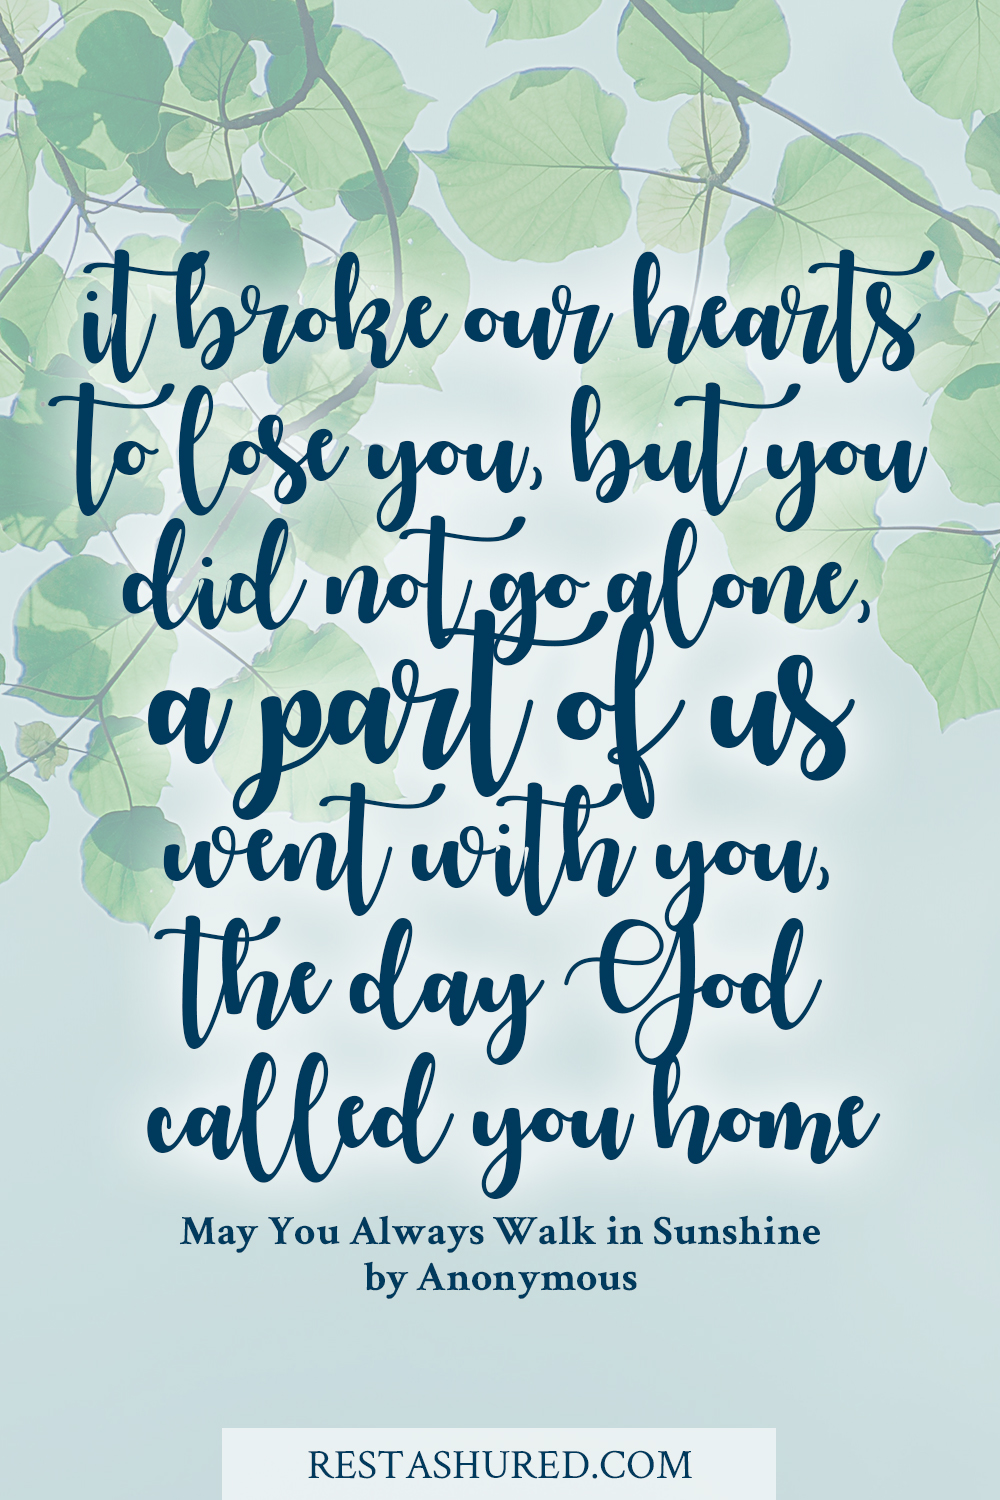 it broke our hearts
to lose you, but you
did not go alone,
a part of us
went with you,
the day God
called you home
May You Always Walk in Sunshine
by Anonymous
RESTASHURED.COM